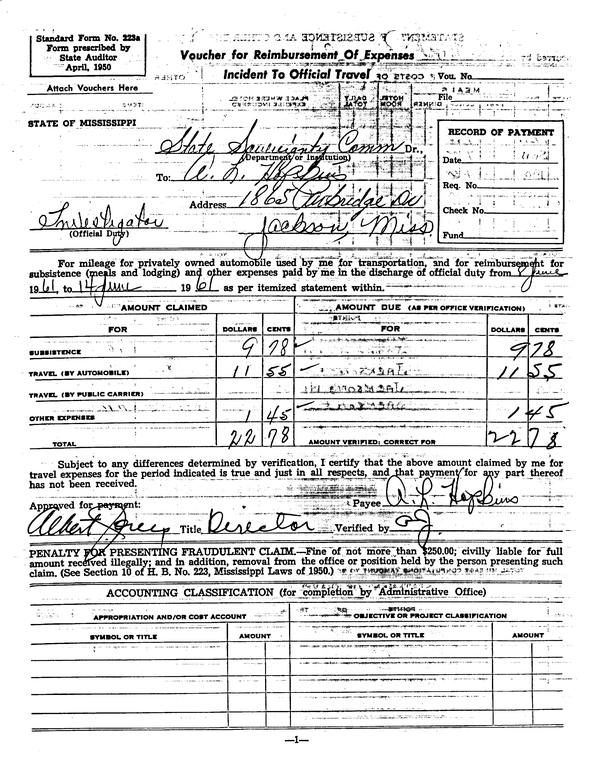 Standard Form No. 223a
Form prescribed by
State Auditor
April, 1950
Voucher for Reimbursement Of Expenses
Incident To Official Travel
Vou. No.
Attach Vouchers Here
File
STATE OF MISSISSIPPI
RECORD OF PAYMENT
State Sovereignty Comm Dr.,
(Department or Institution)
Date
To: A. L. Hopkins
Req. No.
Address 1865 Dr
Check No.
Investigator
Jackson, Miss
(Official Duty)
Fund
For mileage for privately owned automobile used by me for transportation, and for reimbursement for
subsistence (meals and lodging) and other expenses paid by me in the discharge of official duty from 8 June
1961, to 14 June 1961 as per itemized statement within.
AMOUNT CLAIMED AMOUNT DUE (AS PER OFFICE VERIFICATION)
FOR DOLLARS CENTS FOR DOLLARS CENTS
SUBSISTENCE 9 78 9 78
TRAVEL (BY AUTOMOBILE) 11 55 11 55
TRAVEL (BY PUBLIC CARRIER)
OTHER EXPENSES 1 45 1 45
TOTAL 22 78 AMOUNT VERIFIED: CORRECT FOR 22 78
Subject to any differences determined by verification, I certify that the above amount claimed by me for
travel expenses for the period indicated is true and just in all respects, and that payment for any part thereof
has not been received.
Payee A. L. Hopkins
Approved for payment:
Albert Title Director Verified by
PENALTY FOR PRESENTING FRAUDULENT CLAIM.—Fine of not more than $250.00; civilly liable for full
amount received illegally; and in addition, removal from the office or position held by the person presenting such
claim. (See Section 10 of H. B. No. 223, Mississippi Laws of 1950.)
ACCOUNTING CLASSIFICATION (for completion by Administrative Office)
APPROPRIATION AND/OR COST ACCOUNT OBJECTIVE OR PROJECT CLASSIFICATION
SYMBOL OR TITLE AMOUNT SYMBOL OR TITLE AMOUNT
—1—